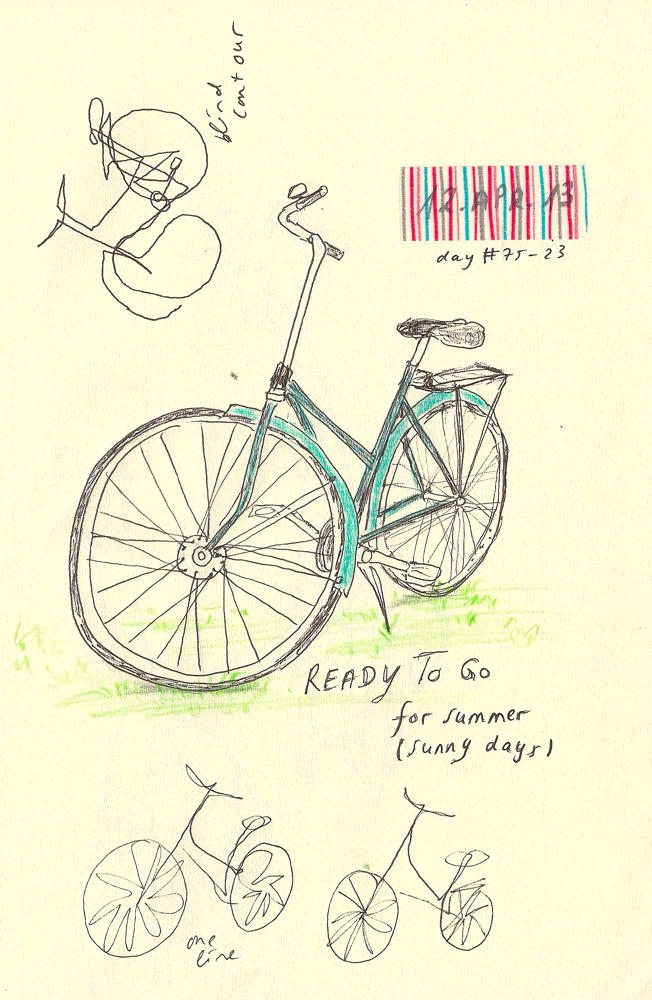 blind
contour
12.APR.13
day #75-23
READY To Go
for summer
(sunny days)
one
line